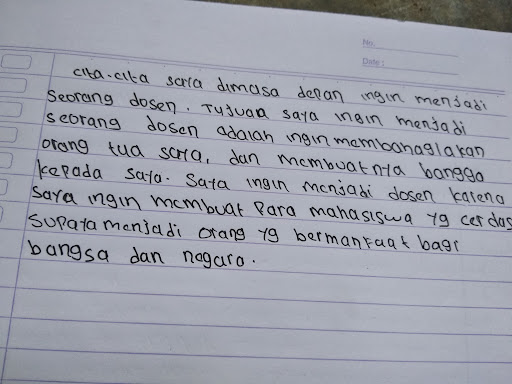 No:
Date:
cita-cita saya dimasa depan ingin menjadi
seorang dosen. Tujuan saya ingin menjadi
seorang dosen adalah ingin membahagiakan
orang tua saya, dan membuatnya bangga
kepada saya. Saya ingin menjadi dosen karena
saya ingin membuat para mahasiswa yg cerdas
supaya menjadi orang yg bermanfaat bagi
bangsa dan negara.